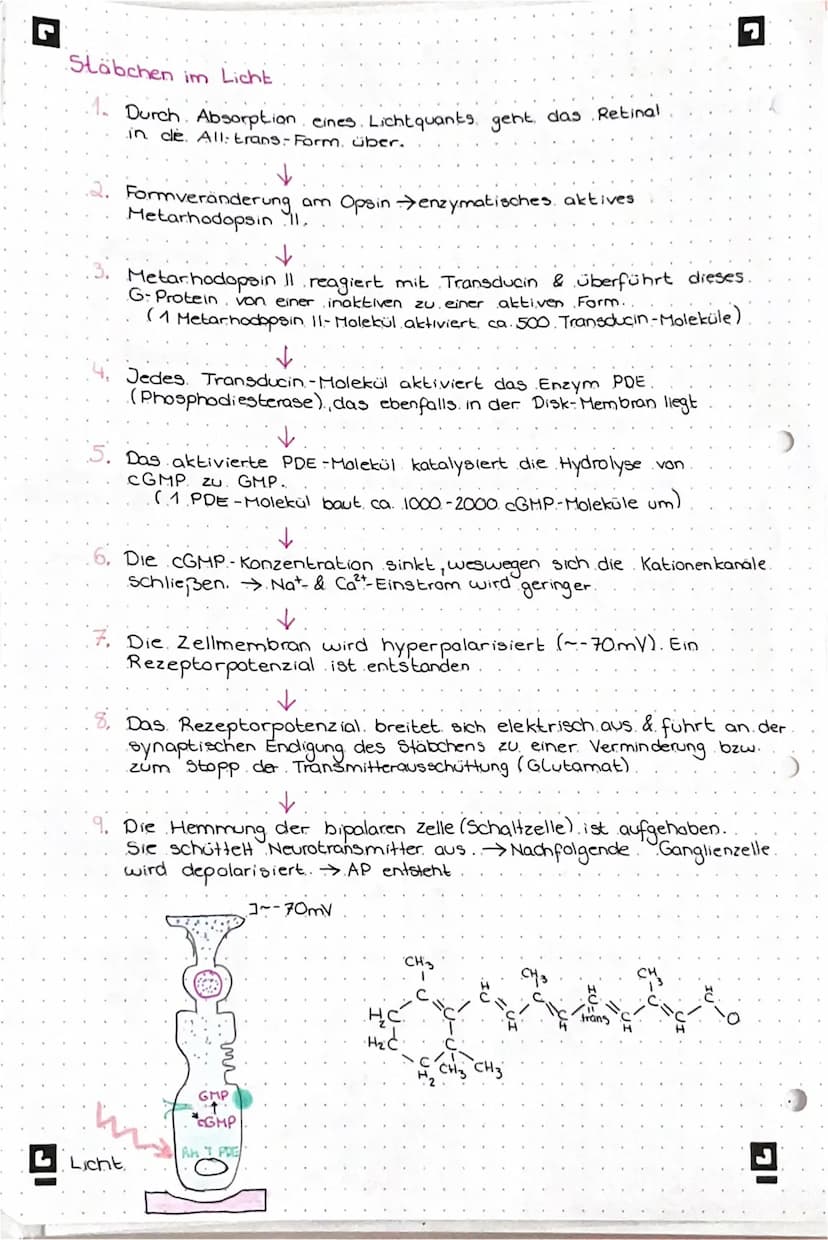 Stäbchen im Licht
1. Durch Absorption eines Lichtquants geht das Retinal
in de All-trans-Form über.
↓
2. Formveränderung am Opsin → enzymatisches aktives
Metarhodopsin II.
↓
3. Metarhodopsin II reagiert mit Transducin & überführt dieses
G-Protein von einer inaktiven zu einer aktiven Form.
(1 Metarhodopsin II-Molekül aktiviert ca. 500 Transducin-Moleküle)
↓
4. Jedes Transducin-Molekül aktiviert das Enzym PDE
(Phosphodiesterase), das ebenfalls in der Disk-Membran liegt
↓
5. Das aktivierte PDE-Molekül katalysiert die Hydrolyse von
cGMP zu GMP.
(1 PDE-Molekül baut ca. 1000-2000 cGMP-Moleküle um)
↓
6. Die cGMP-Konzentration sinkt, weswegen sich die Kationenkanäle
schließen. → Na⁺- & Ca²⁺-Einstrom wird geringer.
↓
7. Die Zellmembran wird hyperpolarisiert (~-70mV). Ein
Rezeptorpotenzial ist entstanden
↓
8. Das Rezeptorpotenzial breitet sich elektrisch aus & führt an der
synaptischen Endigung des Stäbchens zu einer Verminderung bzw.
zum Stopp der Transmitterausschüttung (Glutamat)
↓
9. Die Hemmung der bipolaren Zelle (Schaltzelle) ist aufgehoben.
Sie schüttelt Neurotransmitter aus. → Nachfolgende Ganglienzelle
wird depolarisiert. → AP entsteht
]~-70mV
CH₃ CH₃ CH₃
C H C C H C C H C
H₂C C C C trans C C O
H H H H
H₂C C
C CH₃ CH₃
H₂
GMP
cGMP
RH T PDE
Licht